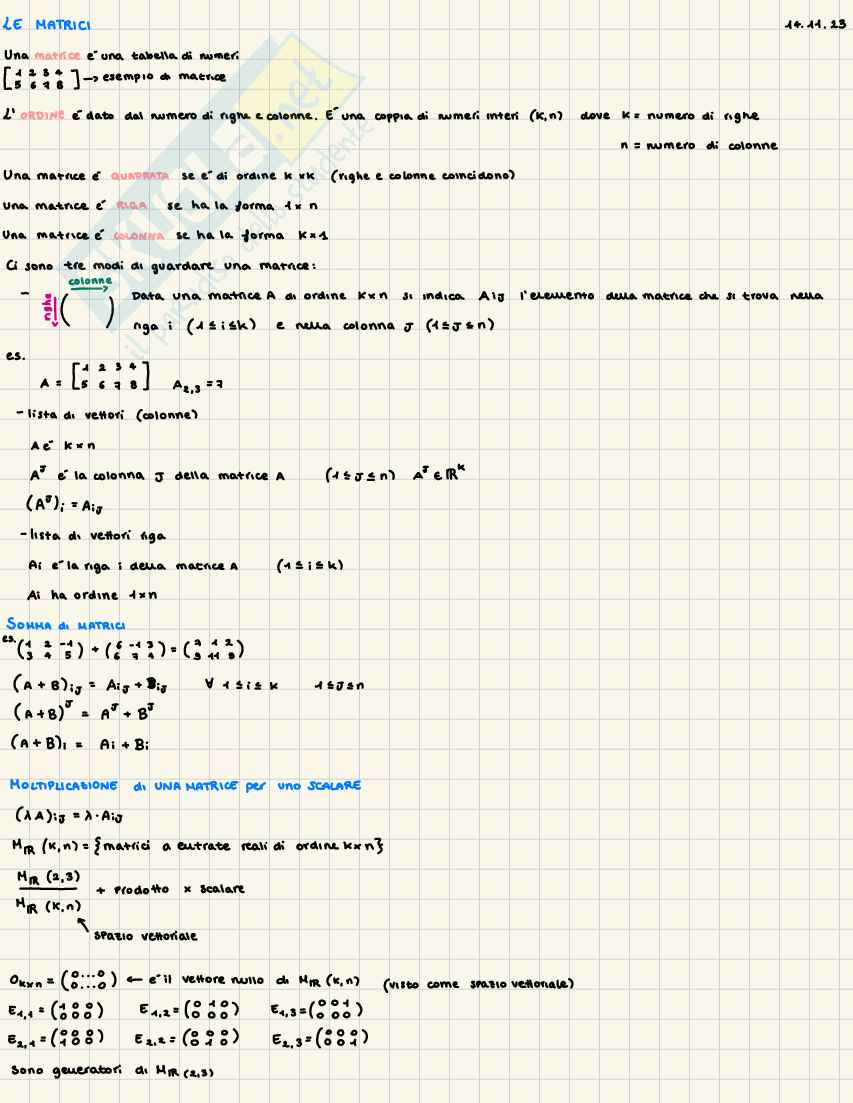 LE MATRICI 14.11.23
Una matrice é una tabella di numeri
[1 2 3 4
5 6 7 8] → esempio di matrice
L' ORDINE é dato dal numero di righe e colonne. É una coppia di numeri interi (K,n) dove K = numero di righe
n = numero di colonne
Una matrice é QUADRATA se é di ordine K×K (righe e colonne coincidono)
Una matrice é RIGA se ha la forma 1×n
Una matrice é COLONNA se ha la forma K×1
Ci sono tre modi di guardare una matrice:
colonne
- righe ( ) Data una matrice A di ordine K×n si indica Aij l'elemento della matrice che si trova nella
riga i (1≤i≤k) e nella colonna J (1≤J≤n)
es.
A = [1 2 3 4
5 6 7 8] A2,3 = 7
- lista di vettori (colonne)
A é K×n
A^J é la colonna J della matrice A (1≤J≤n) A^J ∈ ℝ^K
(A^J)i = AiJ
- lista di vettori riga
Ai é la riga i della matrice A (1≤i≤k)
Ai ha ordine 1×n
SOMMA di MATRICI
es. (1 2 -1
3 4 5) + (6 -1 3
6 7 4) = (7 1 2
9 11 9)
(A+B)iJ = AiJ + BiJ ∀ 1≤i≤K 1≤J≤n
(A+B)^J = A^J + B^J
(A+B)i = Ai + Bi
MOLTIPLICAZIONE di UNA MATRICE per uno SCALARE
(λA)iJ = λ·AiJ
Mℝ (K,n) = {matrici a entrate reali di ordine K×n}
Mℝ (2,3) + prodotto × scalare
Mℝ (K,n)
spazio vettoriale
Ok×n = (0...0
0...0) ← é il vettore nullo di Mℝ (K,n) (visto come spazio vettoriale)
E1,1 = (1 0 0
0 0 0) E1,2 = (0 1 0
0 0 0) E1,3 = (0 0 1
0 0 0)
E2,1 = (0 0 0
1 0 0) E2,2 = (0 0 0
0 1 0) E2,3 = (0 0 0
0 0 1)
Sono generatori di Mℝ (2,3)